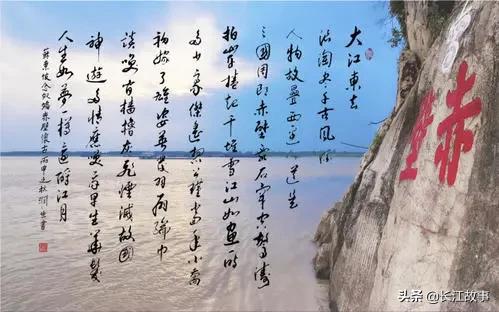 大江東去
浪淘盡千古風流
人物故壘西邊人道是
三國周郎赤壁亂石穿空驚濤
拍岸捲起千堆雪江山如畫一時
多少豪傑遙想公瑾當年小喬
初嫁了雄姿英發羽扇綸巾
談笑間檣櫓灰飛煙滅故國
神遊多情應笑我早生華髮
人生如夢一樽還酹江月
蘇東坡念奴嬌赤壁懷古丙申之秋
赤壁
头条 @长江故事